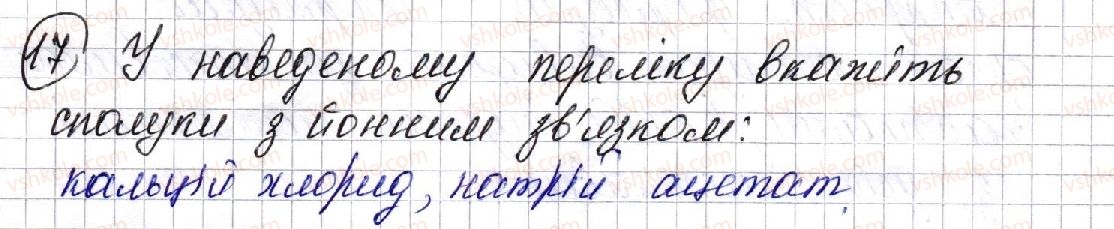 17 У наведеному переліку вкажіть
сполуки з йонним зв'язком:
кальцій хлорид, натрій ацетат.